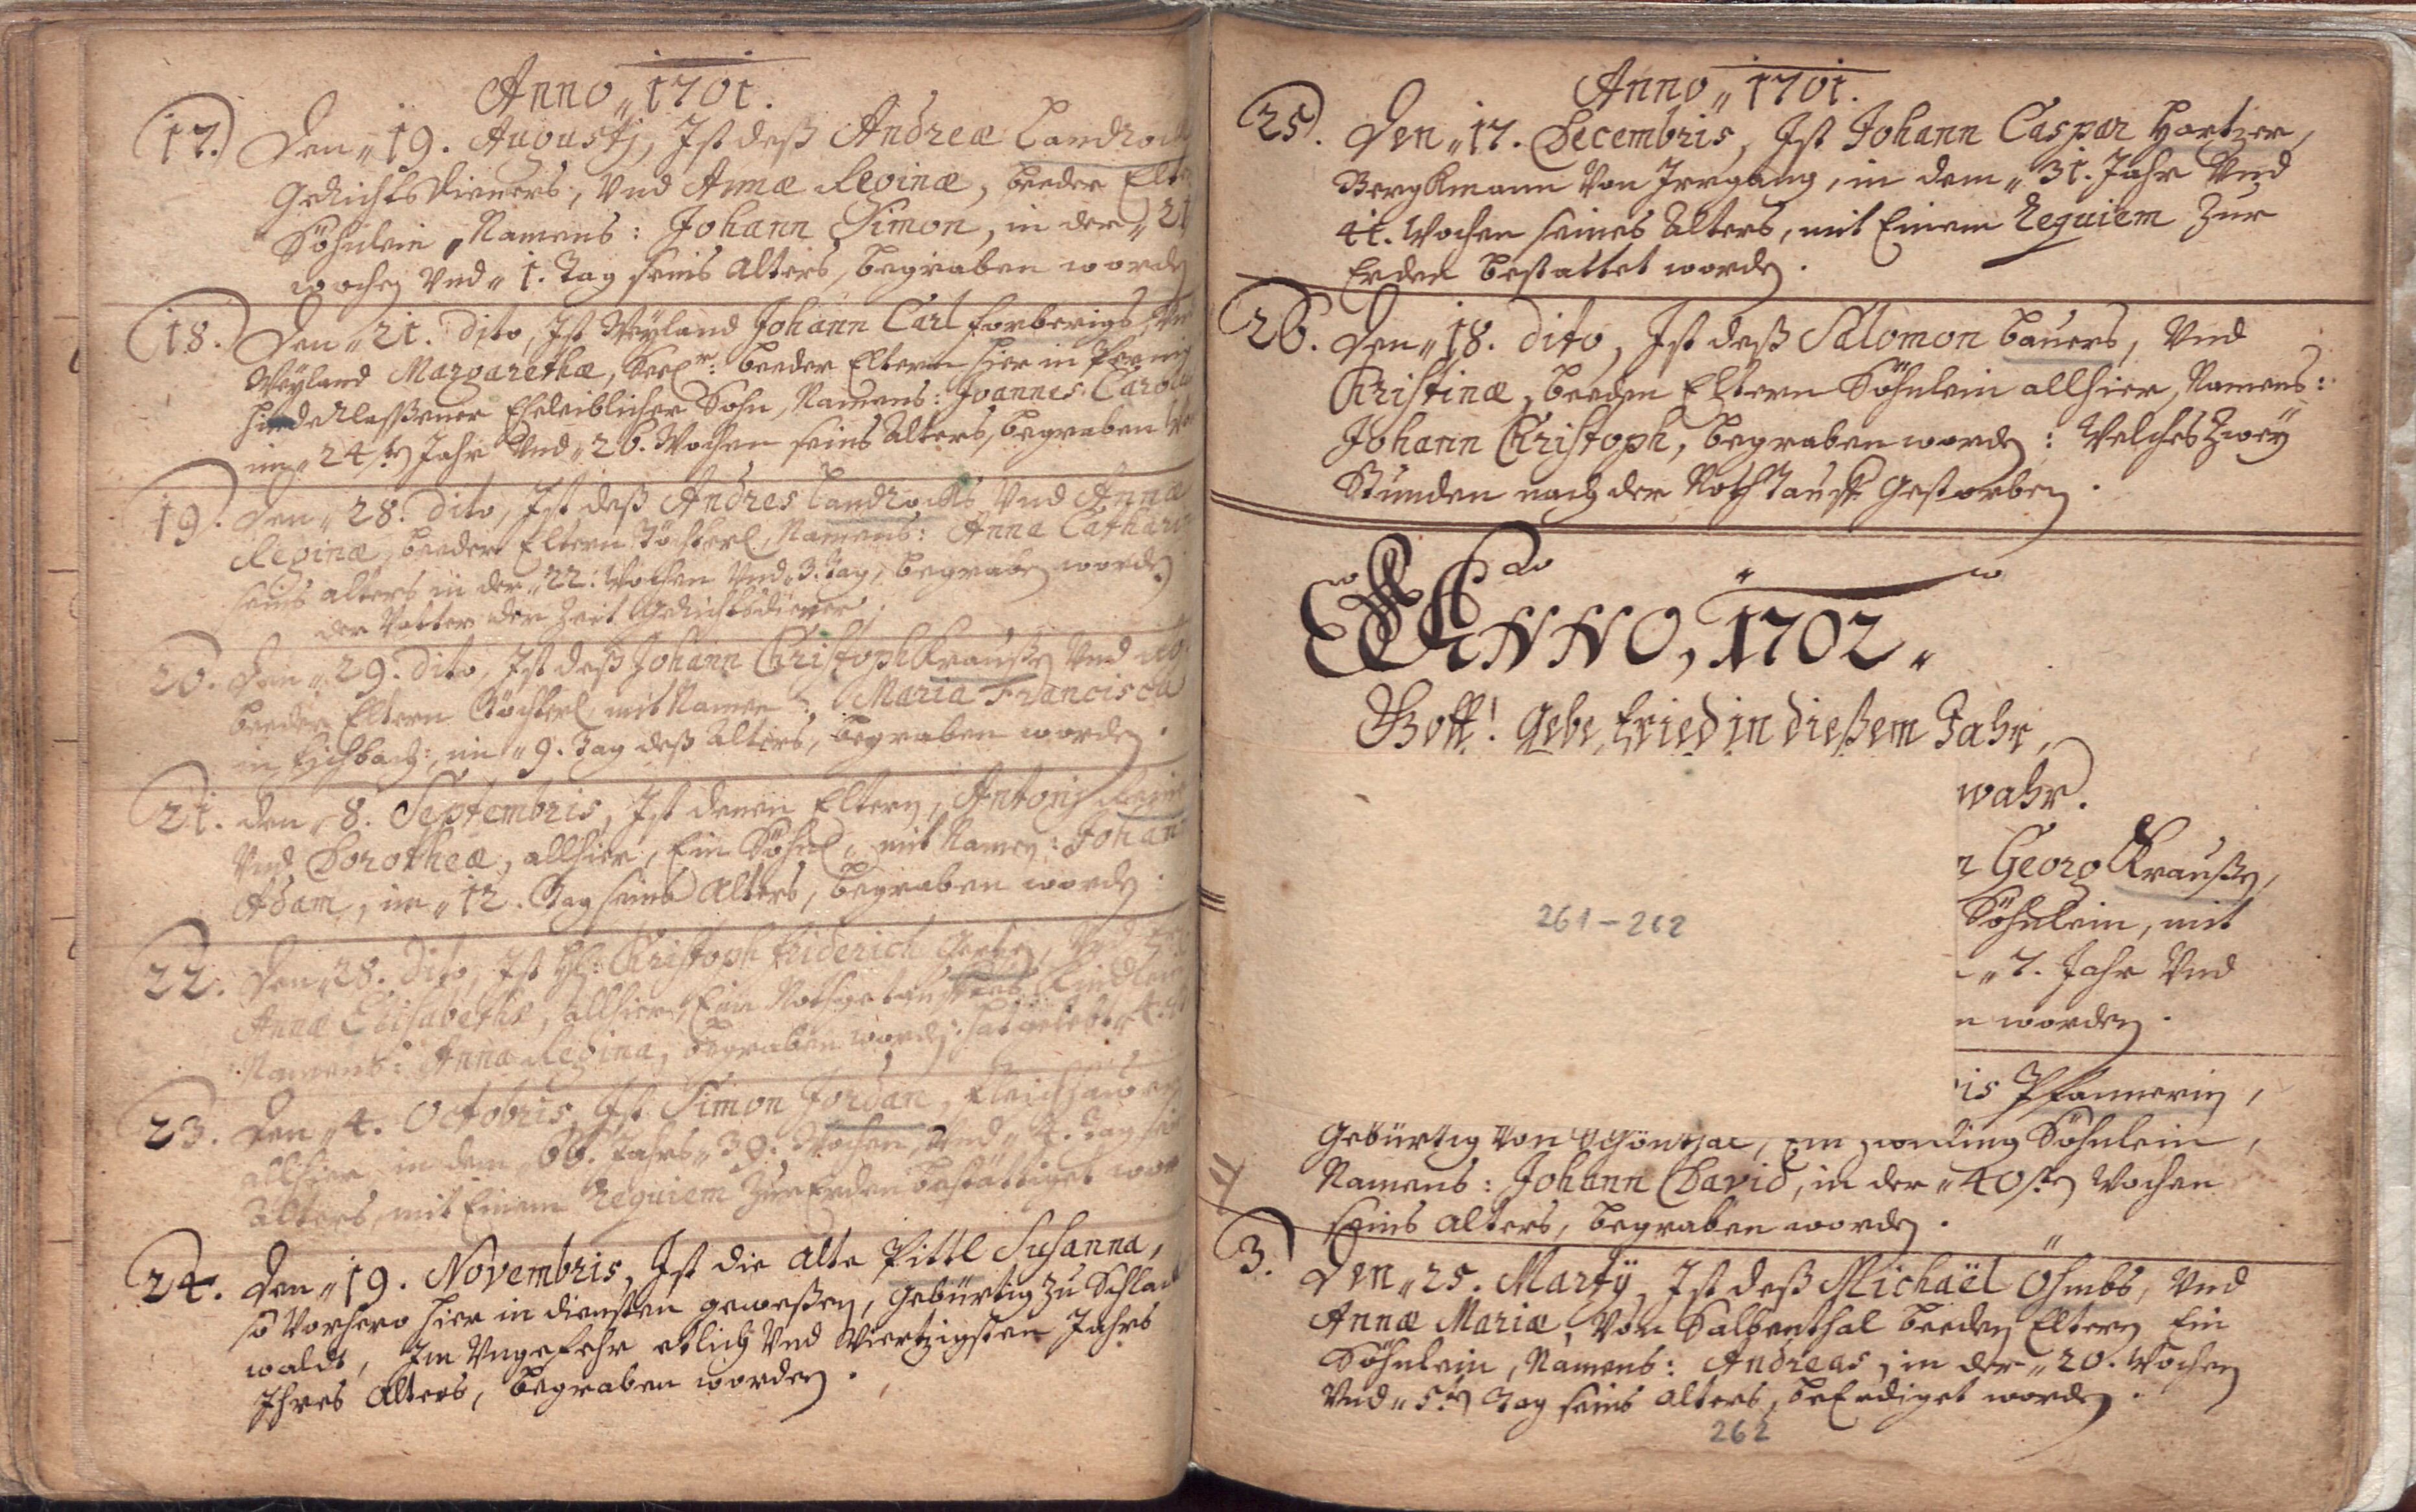 Anno „ 1701.
17. Den „ 19. Augustj, Ist deß Andreæ Landrock
Gerichts dieners, Vnd Annæ Reginæ, beeder Elt
Söhnlein „ Namens: Johann Simon, in der „ 21
wochen Vnd „ 1. Tag seins alters, begraben worden
18. Den „ 21. dito, Ist Weyland Johann Carl Forberigs, Vnd
Weyland Margarethæ, Seel: beeder Eltern hier in
hinderlaßener Eheleiblicher Sohn, Namens: Joannes Carol
im „ 24sten Jahr Vnd „ 26. Wochen seins Alters, begraben
19. Den „ 28. dito, Ist deß Andres Landrocks Vnd Annæ
Reginæ, beeder Eltern Töchterl, Namens: Anna Cathari
seins alters in der „ 22. Wochen Vnd „ 3. tag, begraben worden
der Vatter der Zeit Gerichtsdiener.
20. Den „ 29. dito, Ist deß Johann Christoph Kraußen Vnd
beeder Eltern Töchterl, mit Namen: Maria Francisca
in, im „ 9. Tag deß Alters, begraben worden.
21. den „ 8. Septembris, Ist denen Eltern, Antonj
Vnd Dorotheæ, allhier, Ein Söhnl, mit Namen: Johann
Adam, im „ 12. Tag seins Alters, begraben worden.
22. Den „ 28. dito, Ist H: Christoph Friderich, Vnd
Annæ Elisabethæ, allhier, Ein Nothgetaufftes Kindlein
Namens: Anna Regina, begraben worden: hat gelebt „ 4.
23. Den „ 4. Octobris, Ist Simon Jordan, Fleischhauer
allhier in dem „ 66. Jahrs „ 39. Wochen, Vnd „ 4. Tag
Alters, mit Einem Requiem Zur Erden bestattiget
24. Den „ 19. Novembris, Ist die alte Pittl Susanna,
so Vorhero hier in diensten geweßen, gebürtig zu Schlack
waldt, Im Vngefehr etlich Vnd Viertzigsten Jahrs
Ihres Alters, begraben worden.
Anno „ 1701.
25. Den „ 17. Decembris, Ist Johann Caspar Hertzer,
Bergkmann Von Irrgang, in dem „ 31. Jahr Vnd
41. Wochen seines Alters, mit Einem Requiem Zur
Erden bestattet worden.
26. Den „ 18. dito, Ist deß Salomon Bauers, Vnd
Christinæ, beeden Eltern Söhnlein allhier, Namens:
Johann Christoph, begraben worden: Welches Zwey
Stunden nach der Noth Tauff Gestorben.
ANNO, 1702.
Gott! Gebe fried in dießem Jahr,
wahr.
n Georg Kraußen,
Söhnlein, mit
„ 7. Jahr Vnd
n worden.
261-262
is Pfannerin,
Gebürtig Von Schönthal, Ein Zwilling Söhnlein,
Namens: Johann David, in der „ 40sten Wochen
seins Alters, begraben worden.
3. Den „ 25. Martÿ, Ist deß Michaël Öhmbs, Vnd
Annæ Mariæ, Von Salbenthal beeden Eltern Ein
Söhnlein, Namens: Andreas, in der „ 20. Wochen
Vnd „ 5ten Tag seins alters, beErdiget worden.
262